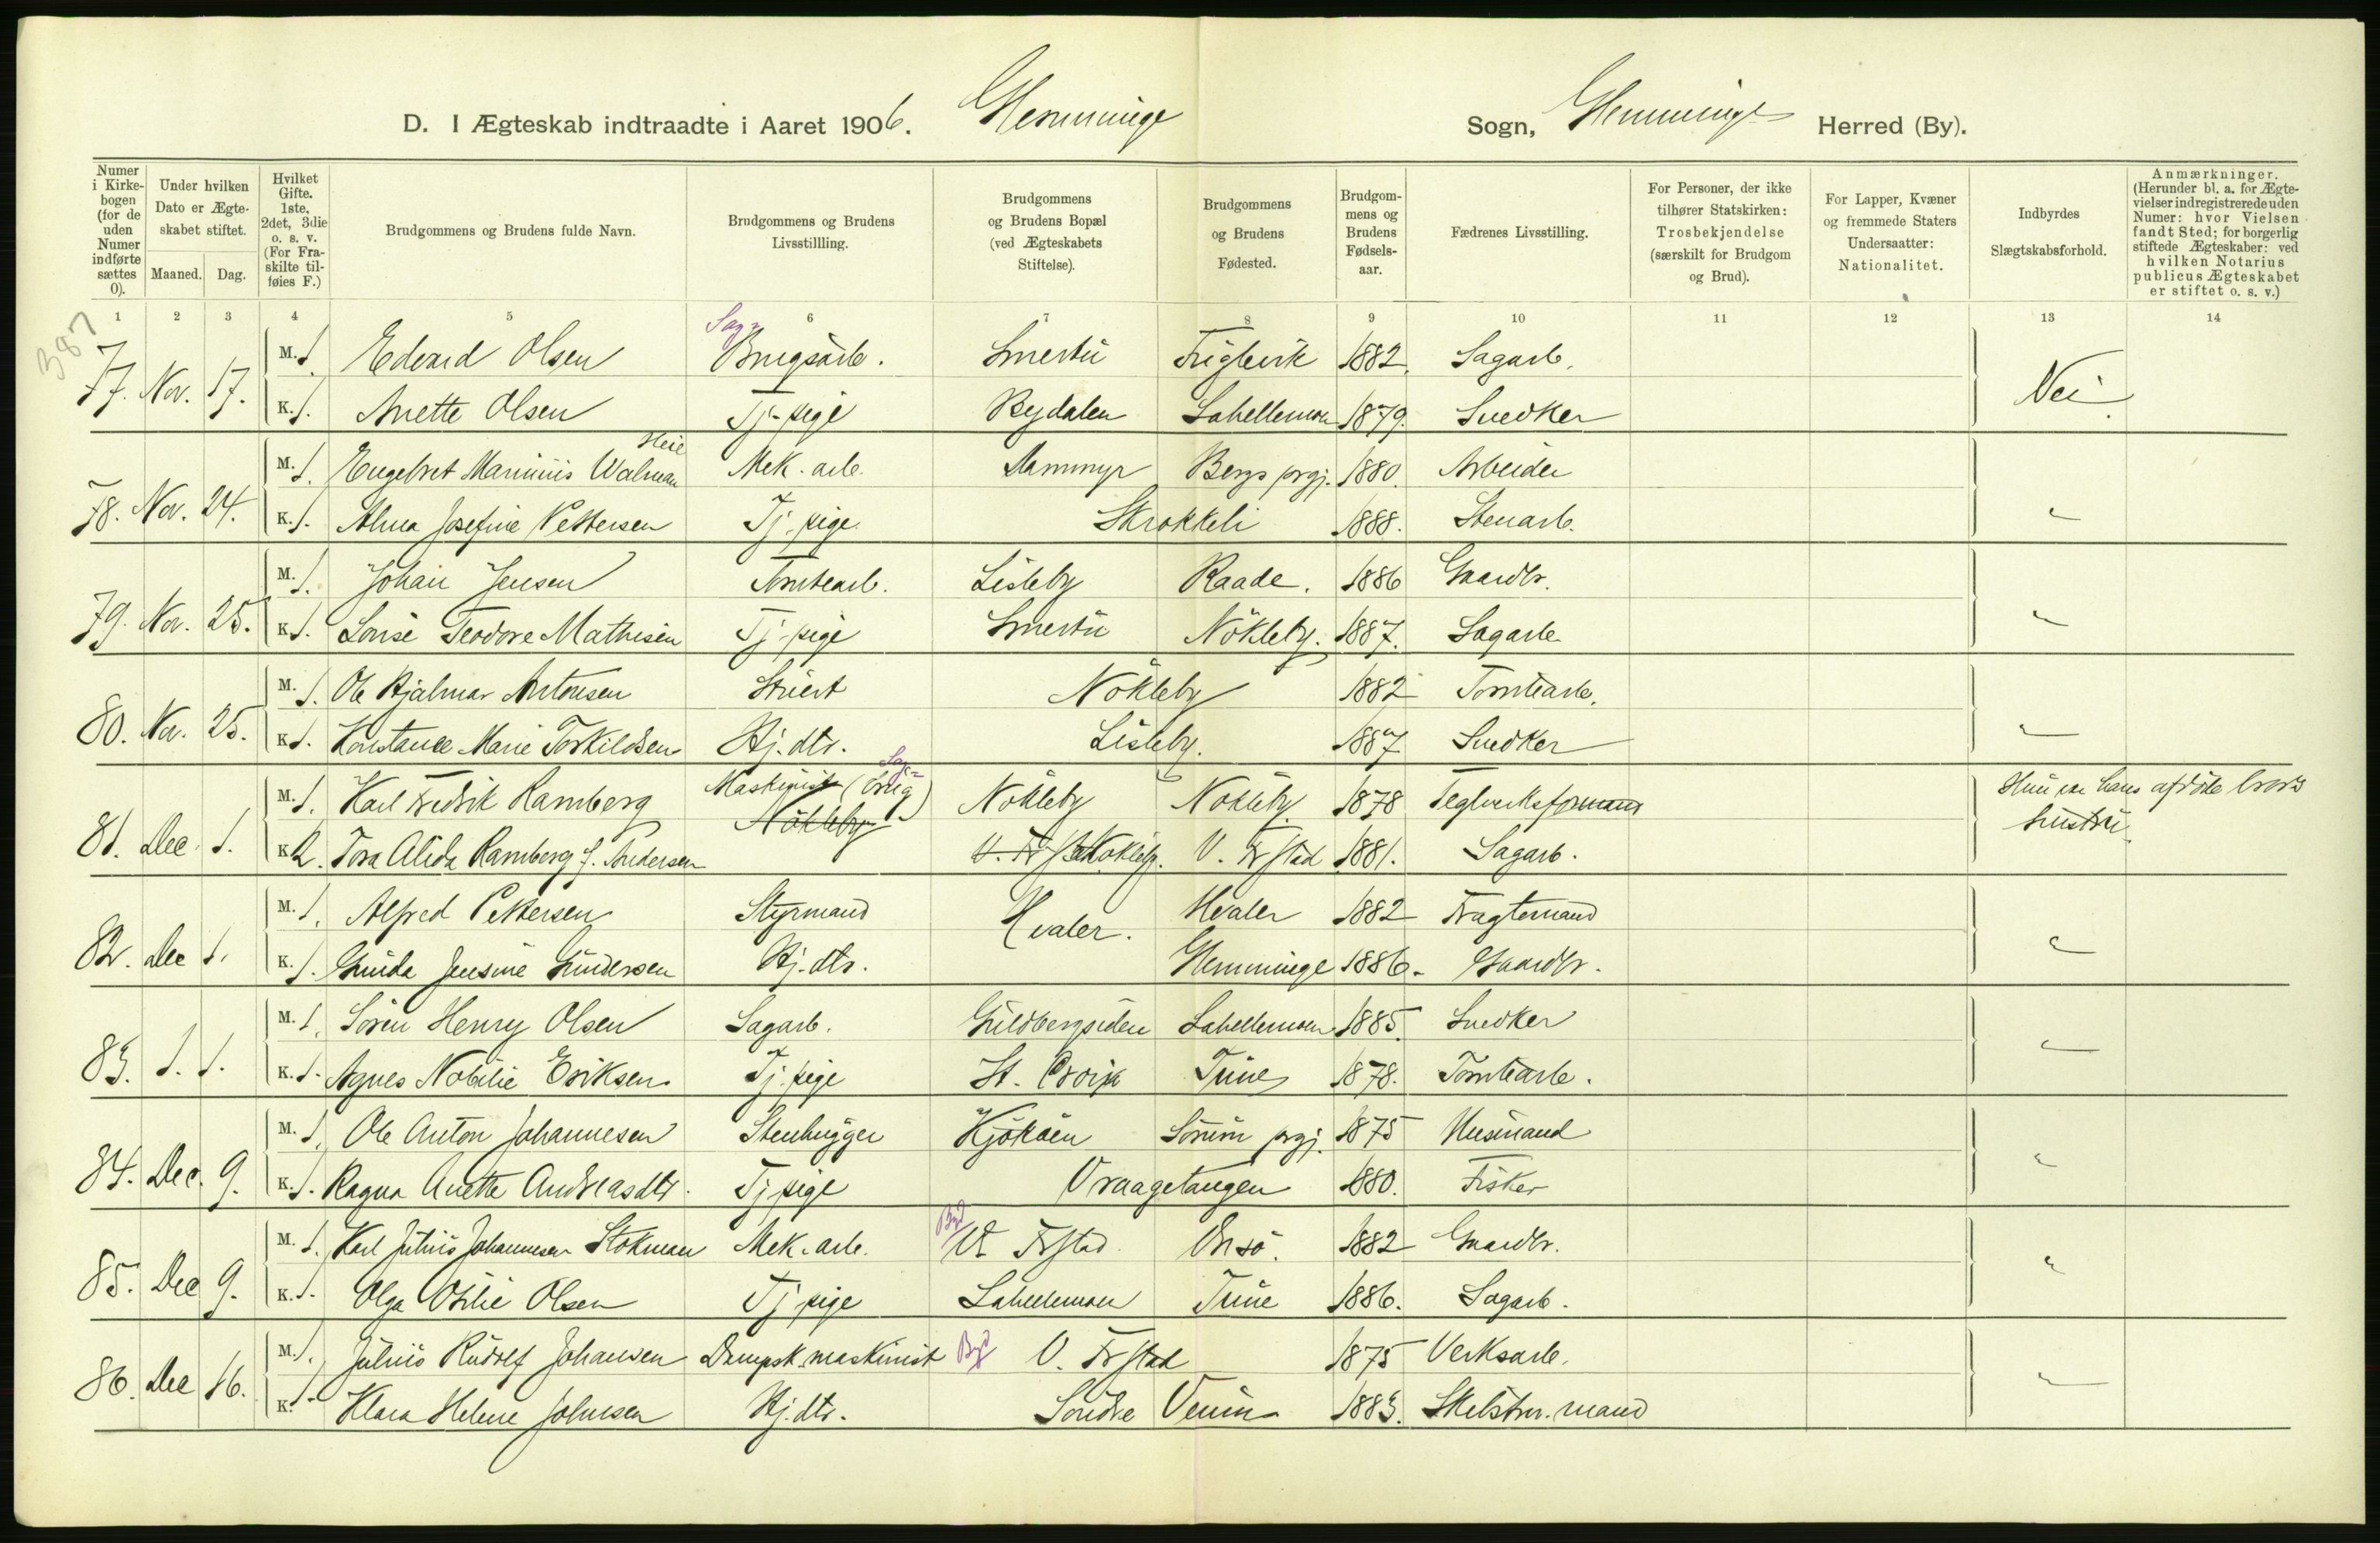 D. I Ægteskab indtraadte i Aaret 1906. Glemminge Sogn, Glemminge Herred (By).
Numer i Kirkebogen (for de uden Numer indførte sættes 0).
Under hvilken Dato er Ægteskabet stiftet.
Maaned. Dag.
Hvilket Gifte. 1ste, 2det, 3die o. s. v. (For Fraskilte tilføies F.)
Brudgommens og Brudens fulde Navn.
Brudgommens og Brudens Livsstillling.
Brudgommens og Brudens Bopæl (ved Ægteskabets Stiftelse).
Brudgommens og Brudens Fødested.
Brudgommens og Brudens Fødselsaar.
Fædrenes Livsstilling.
For Personer, der ikke tilhører Statskirken: Trosbekjendelse (særskilt for Brudgom og Brud).
For Lapper, Kvæner og fremmede Staters Undersaatter: Nationalitet.
Indbyrdes Slægtskabsforhold.
Anmærkninger. (Herunder bl. a. for Ægtevielser indregistrerede uden Numer: hvor Vielsen fandt Sted; for borgerlig stiftede Ægteskaber: ved hvilken Notarius publicus Ægteskabet er stiftet o. s. v.)
1 2 3 4 5 6 7 8 9 10 11 12 13 14
387
77. Nov. 17. M. 1. Edvard Olsen Sag= Brugsarb. Smertu 1882. Sagarb. Nei
K. 1. Anette Olsen Tj.pige Bydalen Lahellemoen 1879. Snedker
78. Nov. 24. M. 1. Engebret Marinius Walman Heie Mek. arb. Dammyr Bergs prgj. 1880. Arbeider "
K. 1. Alma Josefine Pettersen Tj. pige Skrokkeli 1888. Stenarb.
79. Nov. 25. M. 1. Johan Jensen Tomtearb. Lisleby Raade. 1886 Gaardbr. "
K. 1. Lovise Teodore Mathisen Tj. pige Smertu Nökleby. 1887. Sagarb.
80. Nov. 25. M. 1. Ole Hjalmar Antonsen Stuert Nökleby 1882 Tomtearb. "
K. 1. Konstance Marie Torkildsen Hj. dtr. Lisleby. 1887 Snedker
81. Dec. 1. M. 1. Karl Fredrik Ramberg Maskinist (Sag= brug) Nökleby Nökleby Nökleby 1878 Teglverksformand Hun var hans afdöde brors hustru
K. 2. Tora Alida Ramberg f. Andersen V. Fr.stad Nökleby. V. Fr.stad 1881. Sagarb.
82. Dec 1. M. 1. Alfred Pettersen Styrmand Hvaler. Hvaler 1882 Fragtemand "
K. 1. Gunda Jensine Gundersen Hj. dtr. Glemminge 1886. Gaardbr.
83. 1. 1. M. 1. Sören Henry Olsen Sagarb. Guldbergsiden Lahellemoen 1885. Snedker "
K. 1. Agnes Nobilie Eriksen Tj. pige St. Croix Tune 1878. Tomtearb.
84. Dec. 9. M. 1. Ole Anton Johannesen Stenhugger Kjököen Sörum prgj. 1875 Husmand "
K. 1. Ragna Anette Andreasdtr. Tj. pige Vraagetangen 1880. Fisker
85. Dec 9. M. 1. Karl Julius Johannesen Stokman Mek. arb. By V. Fr.stad Onsö. 1882 Gaardbr. "
K. 1. Olga Otilie Olsen Tj. pige Lahellemoen Tune 1886. Sagarb.
86. Dec 16. M. 1. Julius Rudolf Johansen Dampsk. maskinist By V. Fr.stad 1875 Verksarb. "
K. 1. Klara Helene Johnsen Hj. dtr. Söndre Venim 1883. mand